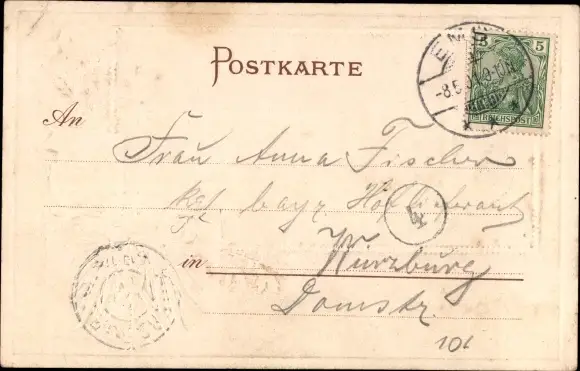 POSTKARTE
5 5
REICHSPOST
-8.5.01.9-10
An
Frau Anna Fischer
bayr. Hoflieferant
4
in Würzburg
Domstr.
101